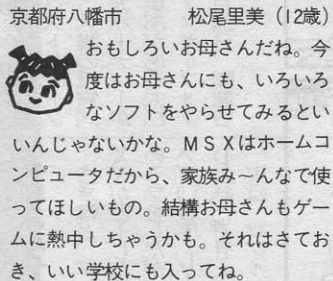 京都府八幡市　　　松尾里美（12歳）
おもしろいお母さんだね。今
度はお母さんにも、いろいろ
なソフトをやらせてみるとい
いんじゃないかな。MSXはホームコ
ンピュータだから、家族み～んなで使
ってほしいもの。結構お母さんもゲー
ムに熱中しちゃうかも。それはさてお
き、いい学校にも入ってね。